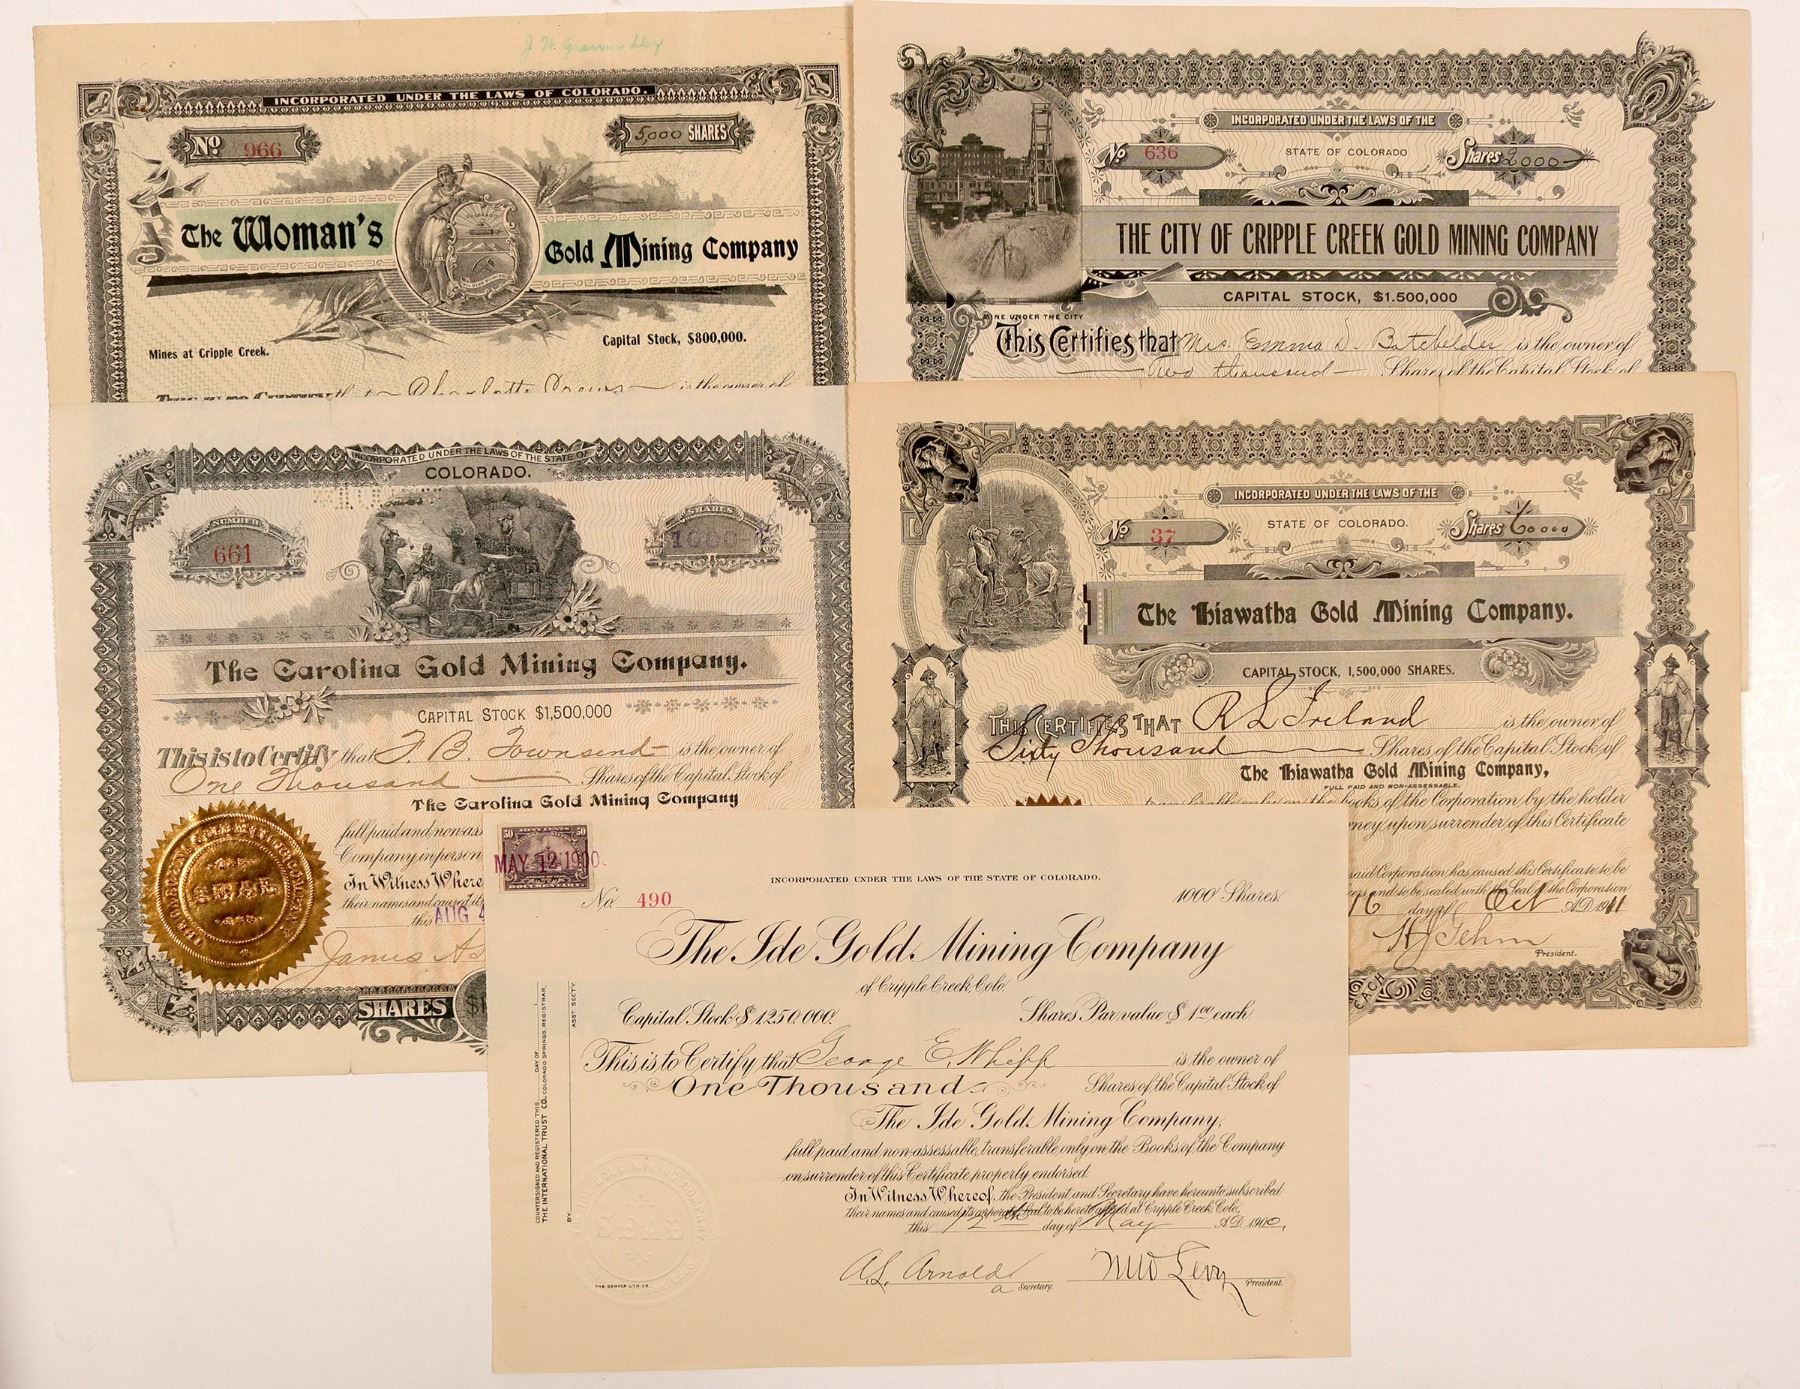 INCORPORATED UNDER THE LAWS OF COLORADO.
No 966
5,000 SHARES
COLORADO
The Woman's Gold Mining Company
Mines at Cripple Creek.
Capital Stock, $800,000.
THIS IS TO CERTIFY that Charlotte Crews is the owner of
INCORPORATED UNDER THE LAWS OF THE
STATE OF COLORADO
No 636
Shares 2000
THE CITY OF CRIPPLE CREEK GOLD MINING COMPANY
CAPITAL STOCK, $1.500,000
MINE UNDER THE CITY
This Certifies that Mrs. Emma D. Batchelder is the owner of
Two thousand Shares of the Capital Stock of
INCORPORATED UNDER THE LAWS OF THE STATE OF
COLORADO.
NUMBER
661
SHARES
1000
The Carolina Gold Mining Company.
CAPITAL STOCK $1,500,000
This is to Certify that T. B. Townsend is the owner of
One Thousand Shares of the Capital Stock of
The Carolina Gold Mining Company
full paid and non-ass
Company in person
In Witness Where
their names and caused it
this AUG 4
James A
SHARES $1
SEAL
INCORPORATED UNDER THE LAWS OF THE
STATE OF COLORADO.
No 37
Shares 60000
The Hiawatha Gold Mining Company.
CAPITAL STOCK, 1,500,000 SHARES.
THIS CERTIFIES THAT R L Ireland is the owner of
Sixty Thousand Shares of the Capital Stock of
The Hiawatha Gold Mining Company,
FULL PAID AND NON-ASSESSABLE.
transferable only on the books of the Corporation by the holder
ney upon surrender of this Certificate
said Corporation has caused this Certificate to be
ers and to be sealed with the Seal of the Corporation
16 day of Oct A.D. 1911
President.
EACH
50 FIFTY CENTS 50
DOCUMENTARY
MAY 12 1900
INCORPORATED UNDER THE LAWS OF THE STATE OF COLORADO.
No. 490
1000 Shares
The Ide Gold Mining Company
of Cripple Creek, Colo.
Capital Stock $1,250,000.
Shares Par value $1.00 each
This is to Certify that George E. Whipp is the owner of
One Thousand Shares of the Capital Stock of
The Ide Gold Mining Company,
full paid and non-assessable, transferable only on the Books of the Company
on surrender of this Certificate properly endorsed.
In Witness Whereof, the President and Secretary have hereunto subscribed
their names and caused its corporate Seal to be hereto affixed at Cripple Creek, Colo,
this 12th day of May A.D. 1900.
A. L. Arnold
a Secretary.
President.
COUNTERSIGNED AND REGISTERED THIS DAY OF
THE INTERNATIONAL TRUST CO. COLORADO SPRINGS, REGISTRAR,
BY ASST. SECTY.
SEAL
THE DENVER LITH. CO.